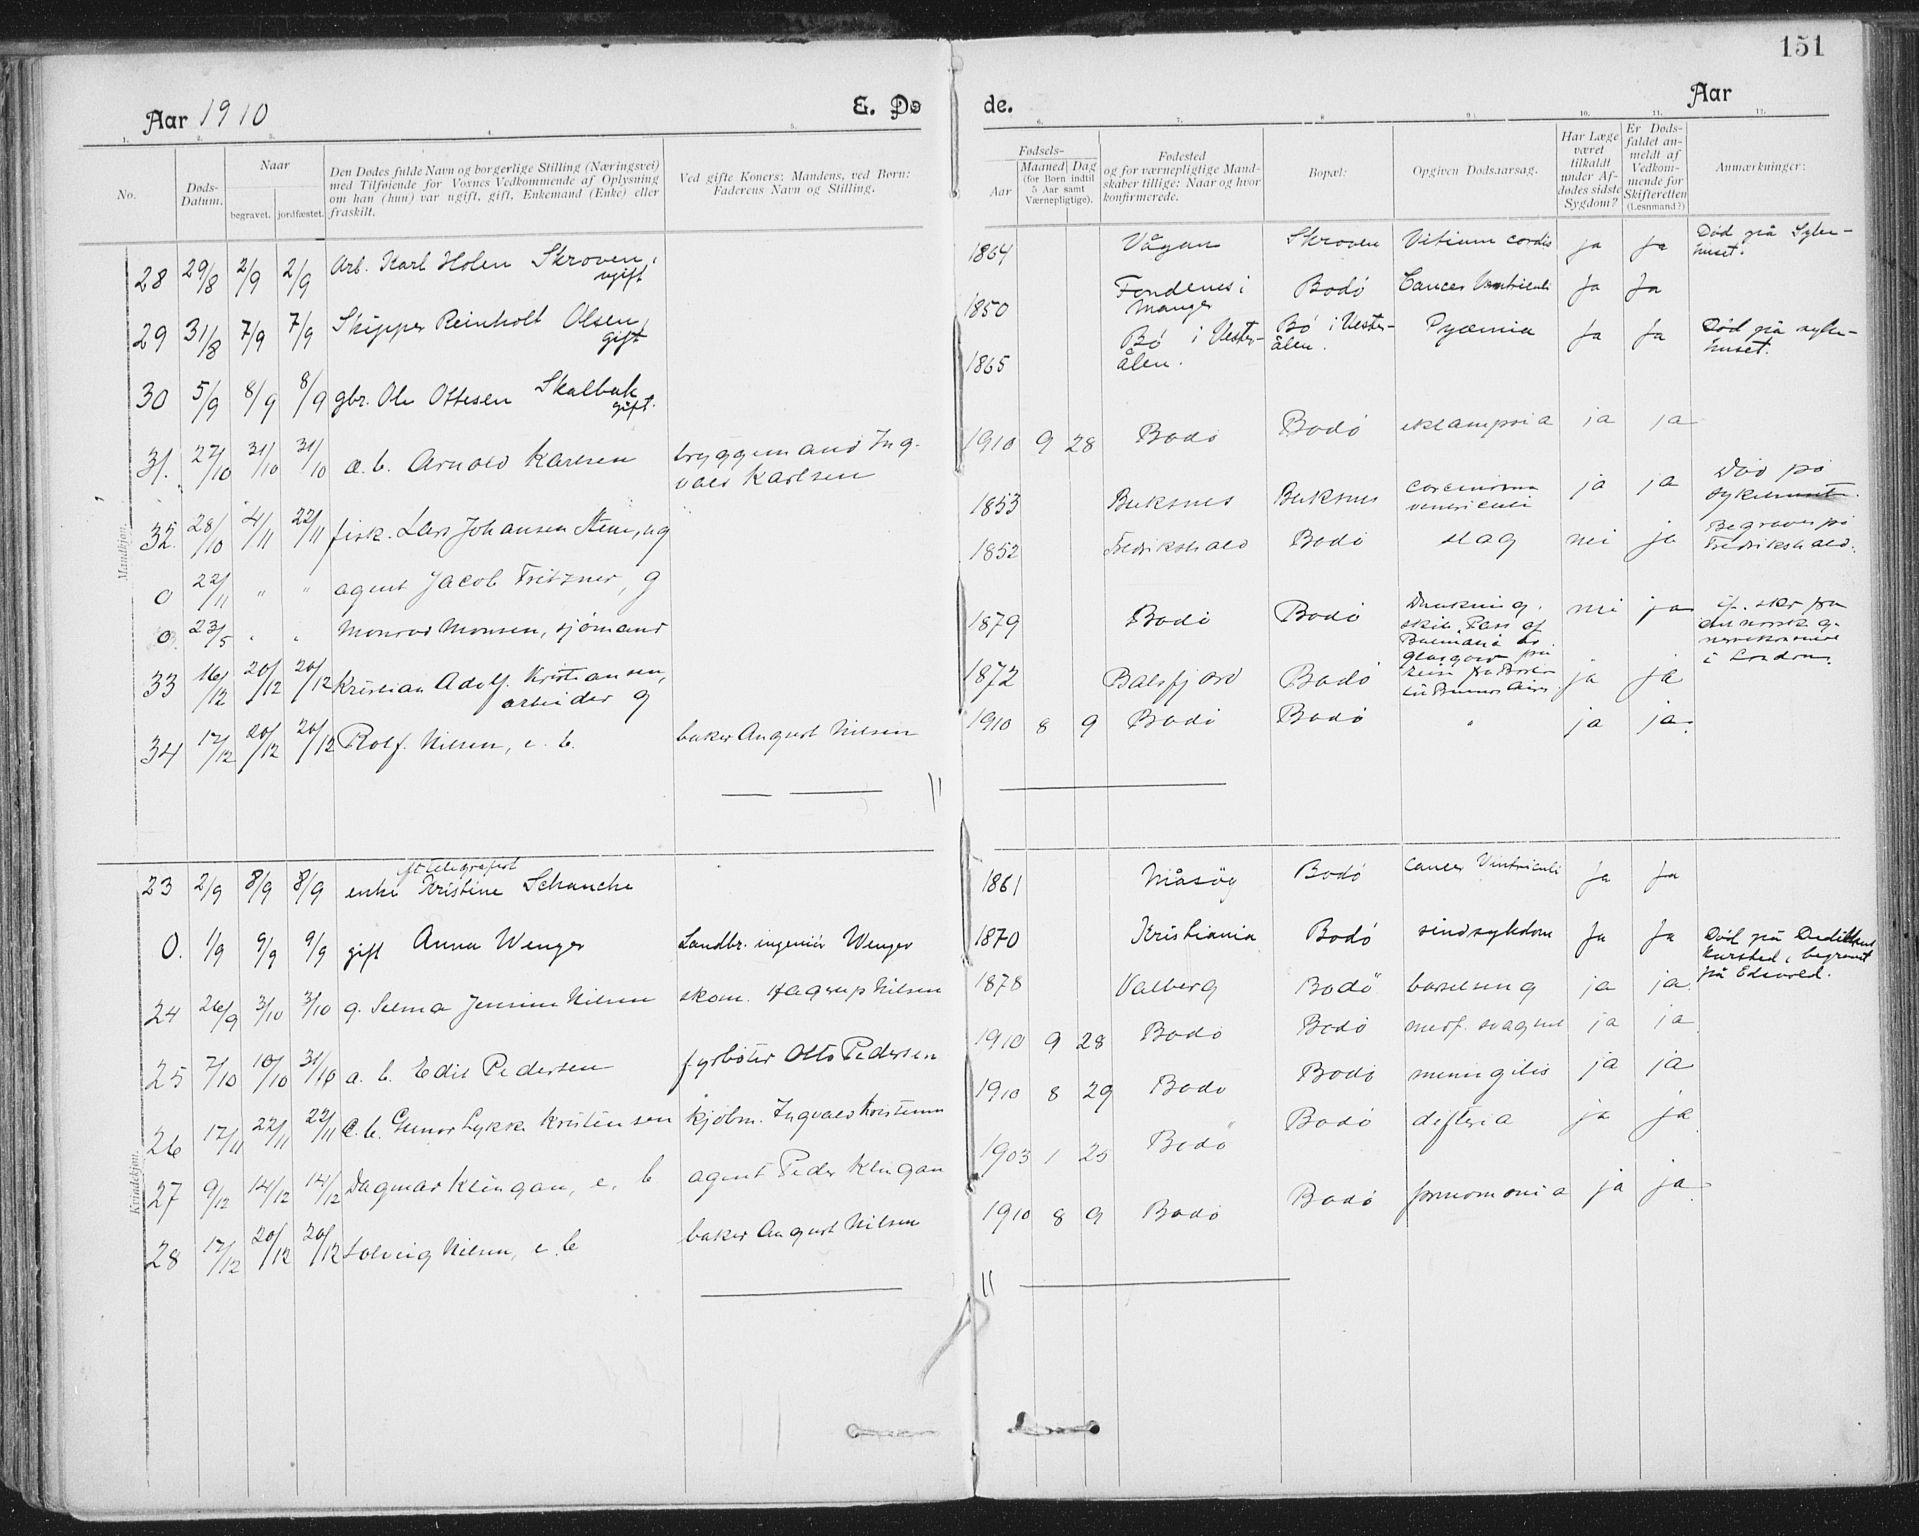 151
Aar 1910
E. Dø
de.
Aar
1. 2. 3. 4. 5.
6. 7. 8. 9. 10. 11. 12.
No.
Døds-
Datum.
Naar
begravet. jordfæstet.
Den Dødes fulde Navn og borgerlige Stilling (Næringsvei)
med Tilføiende for Voxnes Vedkommende af Oplysning
om han (hun) var ugift, gift, Enkemand (Enke) eller
fraskilt.
Ved gifte Koners: Mandens, ved Børn:
Faderens Navn og Stilling.
Fødsels-
Aar
Maaned Dag
(for Børn indtil
5 Aar samt
Værnepligtige).
Fødested
og for værnepligtige Mand-
skaber tillige: Naar og hvor
konfirmerede.
Bopæl:
Opgiven Dødsaarsag.
Har Læge
været
tilkaldt
under Af-
dødes sidste
Sygdom?
Er Døds-
faldet an-
meldt af
Vedkom-
mende for
Skifteretten
(Lensmand?)
Anmærkninger:
Mandkjøn.
28 29/8 2/9 2/9 Arb. Karl Holen Skroven,
ugift
1864 Vågan Skroven Vitium cordis ja ja Død på Syke-
huset.
29 31/8 7/9 7/9 Skipper Reinholt Olsen,
gift
1850 i
Manger Bodø Cancer Ventriculi Ja Ja
30 5/9 8/9 8/9 gbr. Ole Ottesen Skalbak
gift.
1865 Bø i Vester-
ålen. Bø i Vester-
ålen. Pyæmia Ja Ja Død på syke-
huset.
31. 27/10 31/10 31/10 æ. b. Arnold Karlsen bryggemand Ing-
vald Karlsen
1910 9 28 Bodø Bodø eklampsia ja ja
32. 28/10 4/11 22/11 fisk. Lars Johansen ug
1853 Buksnes Buksnes carcinoma
ventriculi ja ja Død på
sykehuset.
0 22/11 " " agent Jacob Fritzner, g
1852 Fredrikshald Bodø slag nei ja Begraves på
Fredrikshald.
0. 23/5 " " Monrad Monsen, sjømand
1879 Bodø Bodø Drukning.
skib Pass of
av
Glasgow på
reise fra
til Buenos Aires nei ja if. skr fra
det norske g-
neralkonsulat
i London.
33 16/12 20/12 20/12 Kristian Adolf Kristiansen,
arbeider g
1872 Balsfjord Bodø ja ja
34 17/12 20/12 20/12 Rolf Nilsen, e. b. baker August Nilsen
1910 8 9 Bodø Bodø " ja ja.
Kvindekjøn.
23 2/9 8/9 8/9 enke ft telegrafist Kristine Schanche
1861 Måsøy Bodø cancer Ventriculi Ja Ja
0. 1/9 9/9 9/9 gift Anna Wenger Landbr. ingeniør Wenger
1870 Kristiania Bodø sindsykdom Ja Ja Død på
kursted, begravet
på Edsvold.
24 26/9 3/10 3/10 g. Selma Jensine Nilsen skom. Hagerup Nilsen
1878 Valberg Bodø barselseng ja ja
25 7/10 10/10 31/10 a. b. Edit Pedersen fyrbøter Otto Pedersen
1910 9 28 Bodø Bodø medf. svaghet ja ja
26 17/11 22/11 22/11 e. b. Gunvor Lykke Kristensen kjøbm. Ingvald Kristensen
1910 8 29 Bodø Bodø meningitis ja ja
27 9/12 14/12 14/12 Dagmar Klingan, e. b. agent Peder Klingan
1903 1 25 Bodø Bodø difteria ja ja
28 17/12 20/12 20/12 Solveig Nilsen, e. b. baker August Nilsen
1910 8 9 Bodø Bodø pnnomonia ja ja.